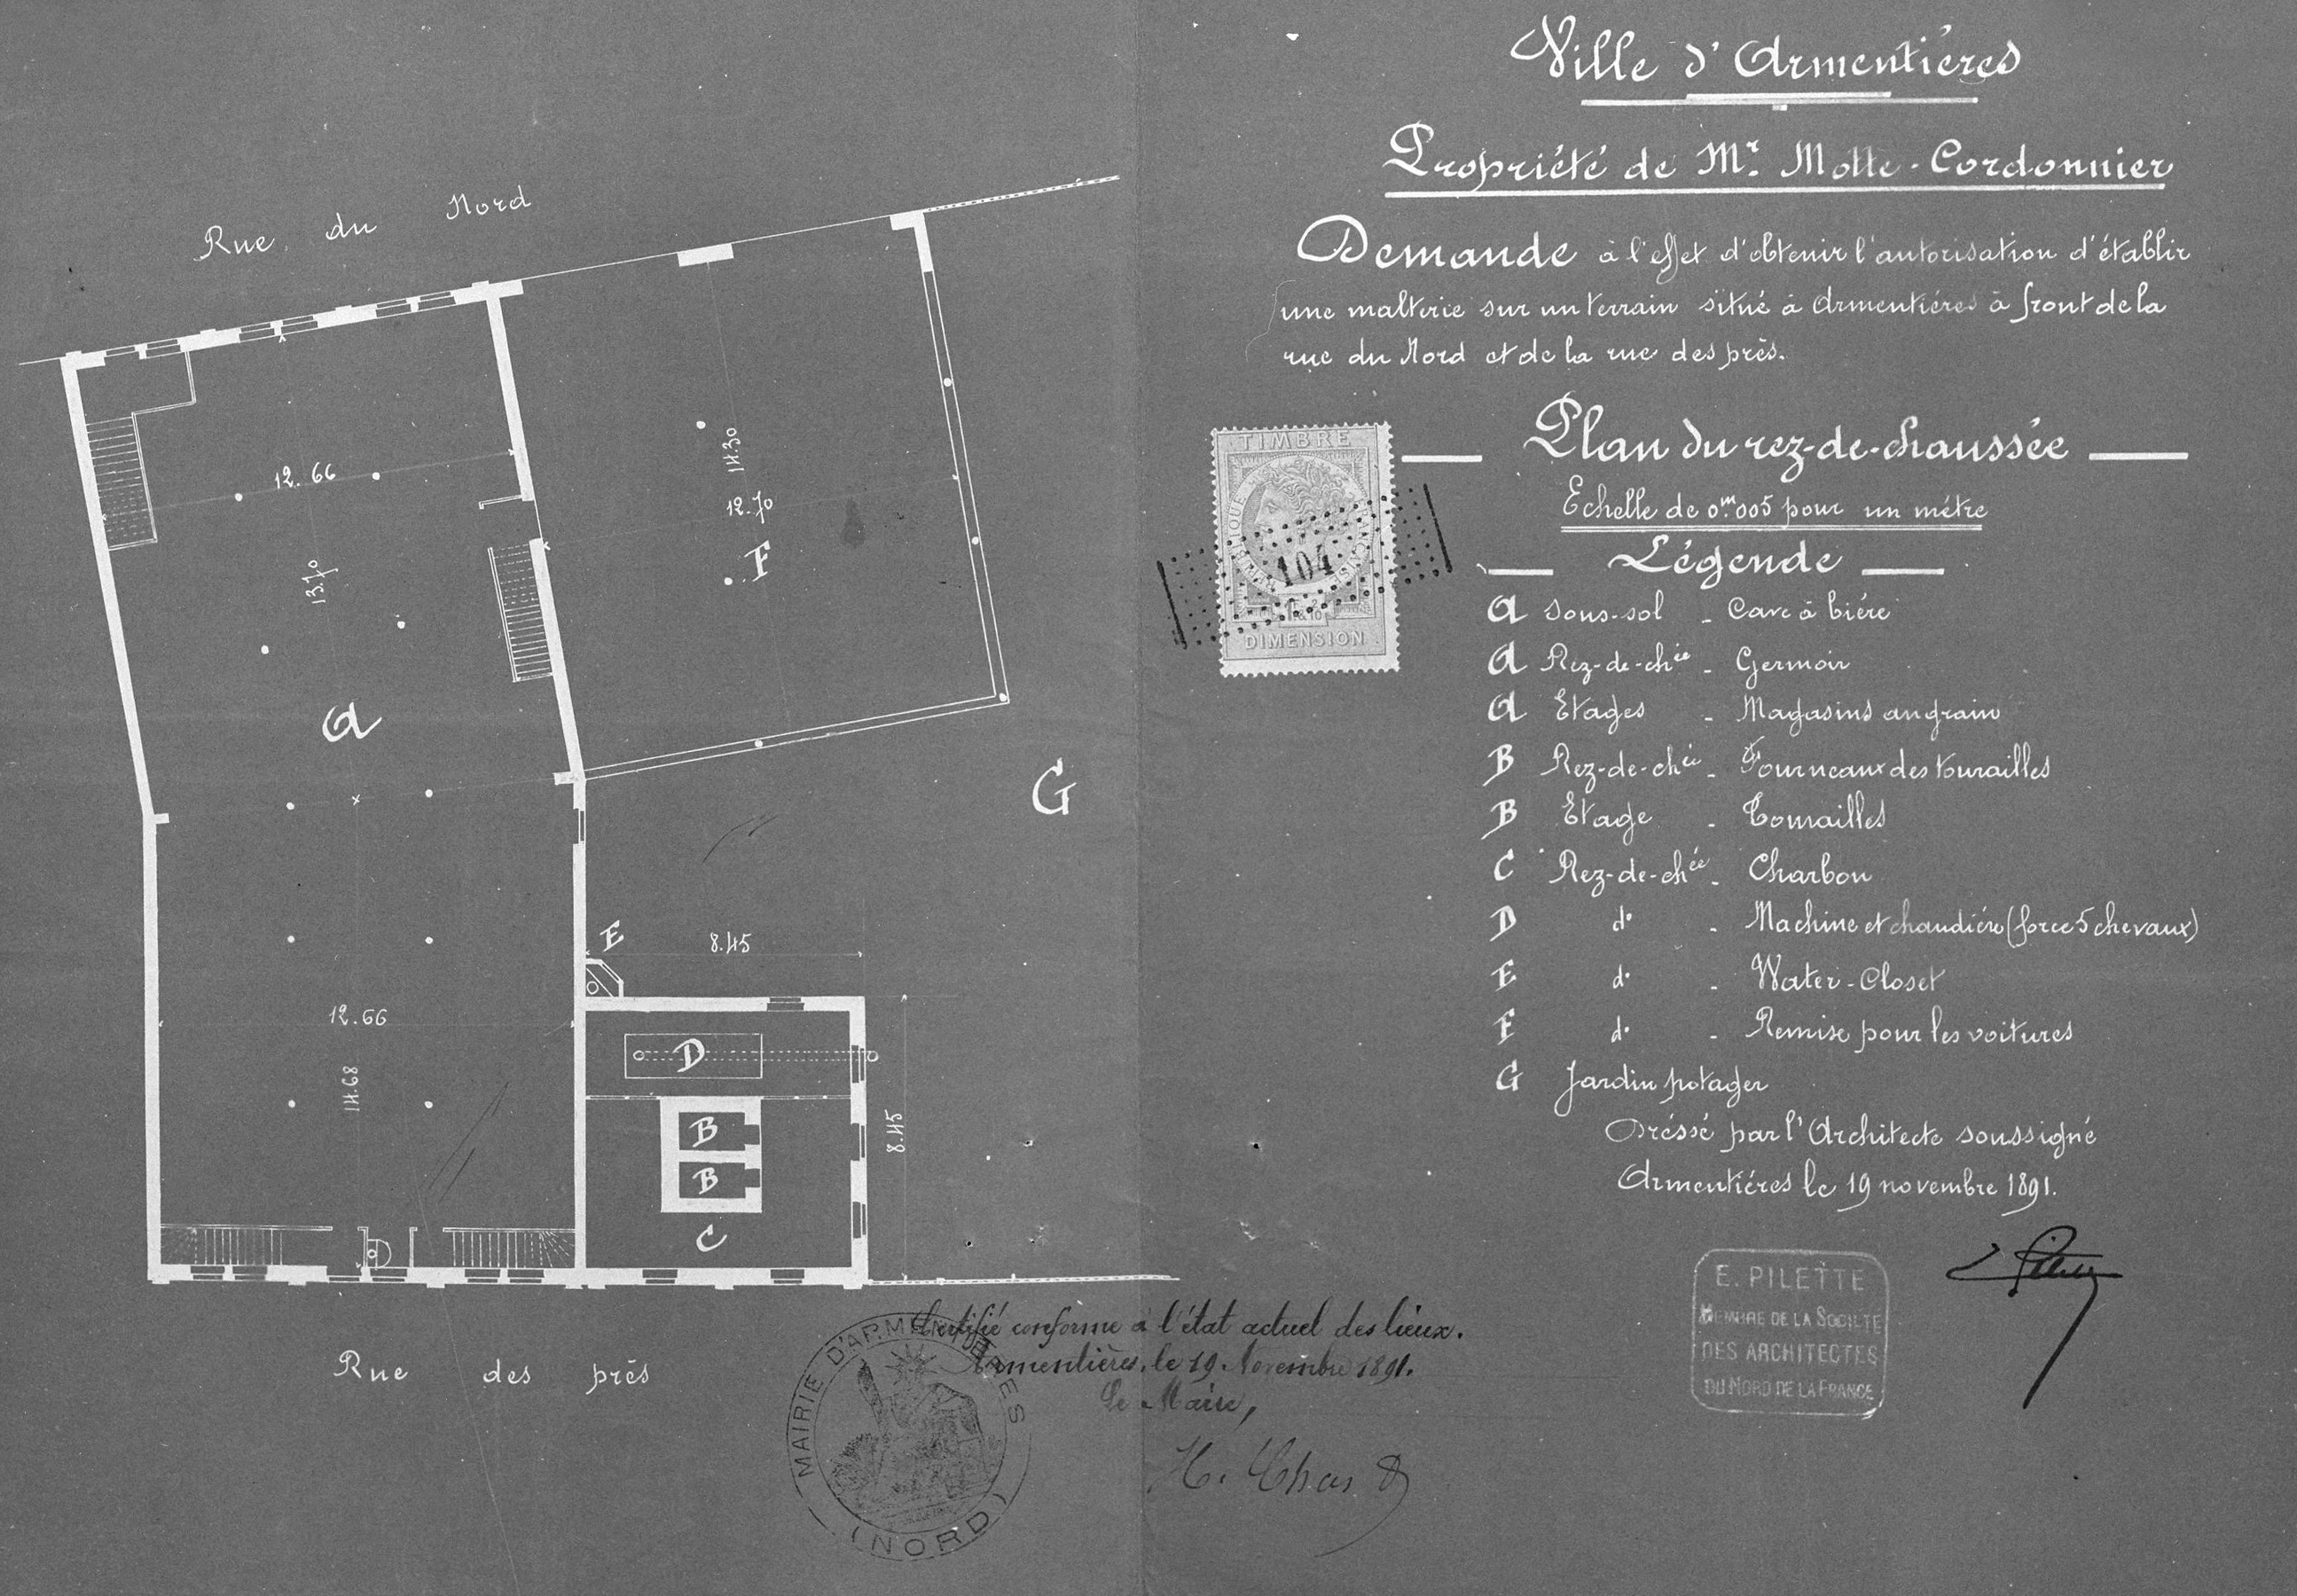 Ville d'Armentiéres
Propriété de Mr. Motte-Cordonnier
Demande à l'effet d'obtenir l'autorisation d'établir
une malterie sur un terrain situé à Armentiéres à front de la
rue du Nord et de la rue des près.
Plan du rez-de-chaussée
Echelle de 0m.005 pour un métre
Légende
A Sous-sol - Cave à biére
A Rez-de-chée - Germoir
A Etages - Magasins au grain
B Rez-de-chée - Fourneaux des tourailles
B Etage - Tourailles
C Rez-de-chée - Charbon
D do - Machine et chaudiére (force 5 chevaux)
E do - Water-Closet
F do - Remise pour les voitures
G Jardin potager
Dréssé par l'Architecte soussigné
Armentiéres le 19 novembre 1891.
E. PILETTE
MEMBRE DE LA SOCIÉTÉ
DES ARCHITECTES
DU NORD DE LA FRANCE
TIMBRE
104
DIMENSION
Rue du Nord
12.66
13.70
14.30
12.70
F
A
G
E
8.45
12.66
14.68
D
B
B
C
8.45
Rue des près
Certifié conforme à l'état actuel des lieux.
Armentières, le 19 Novembre 1891.
Le Maire,
H. Chas
MAIRIE D'ARMENTIÈRES
(NORD)